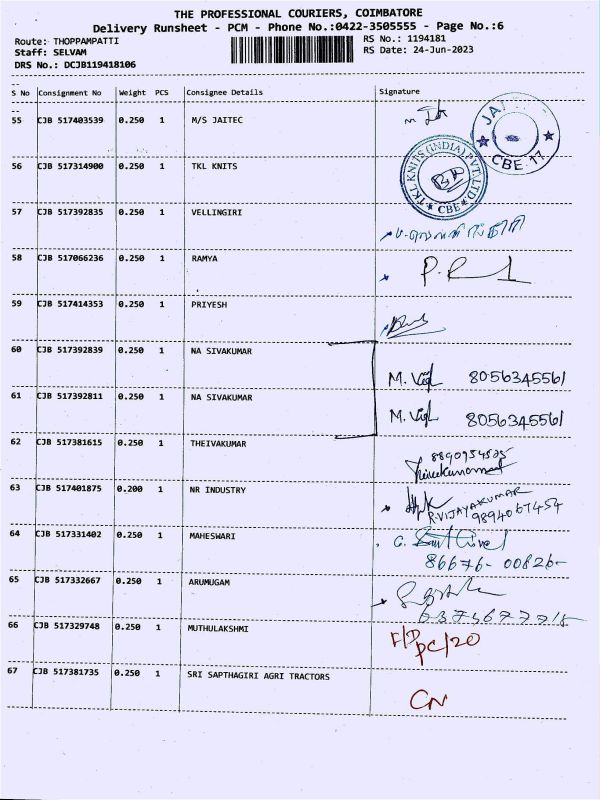 THE PROFESSIONAL COURIERS, COIMBATORE
Delivery Runsheet - PCM - Phone No.:0422-3505555 - Page No.:6
Route: THOPPAMPATTI
RS No.: 1194181
Staff: SELVAM
RS Date: 24-Jun-2023
DRS No.: DCJB119418106
S No Consignment No Weight PCS Consignee Details Signature
55 CJB 517403539 0.250 1 M/S JAITEC
CBE 17
56 CJB 517314900 0.250 1 TKL KNITS
TKL KNITS (INDIA) PVT. LTD
CBE
57 CJB 517392835 0.250 1 VELLINGIRI
58 CJB 517066236 0.250 1 RAMYA
59 CJB 517414353 0.250 1 PRIYESH
60 CJB 517392839 0.250 1 NA SIVAKUMAR
M. 8056345561
61 CJB 517392811 0.250 1 NA SIVAKUMAR
M. 8056345561
62 CJB 517381615 0.250 1 THEIVAKUMAR
63 CJB 517401875 0.200 1 NR INDUSTRY
R.VIJAYAKUMAR
9894067454
64 CJB 517331402 0.250 1 MAHESWARI
86676-00826-
65 CJB 517332667 0.250 1 ARUMUGAM
66 CJB 517329748 0.250 1 MUTHULAKSHMI
F/D
PC/20
67 CJB 517381735 0.250 1 SRI SAPTHAGIRI AGRI TRACTORS
CN